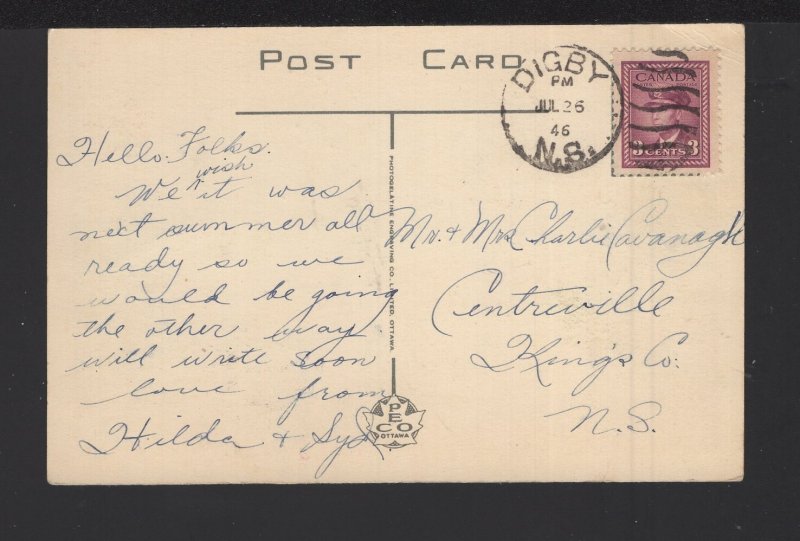 POST CARD
DIGBY
PM
JUL 26
46
N.S.
CANADA
3 CENTS 3
Hello Folks.
wish
We ^ it was
next summer all
ready so we
would be going
the other way
will write soon
love from
Hilda + Syd
Mr. + Mrs Charlie Cavanagh
Centreville
King's Co.
N.S.
PHOTOGELATINE ENGRAVING CO. LIMITED, OTTAWA
PECO
OTTAWA